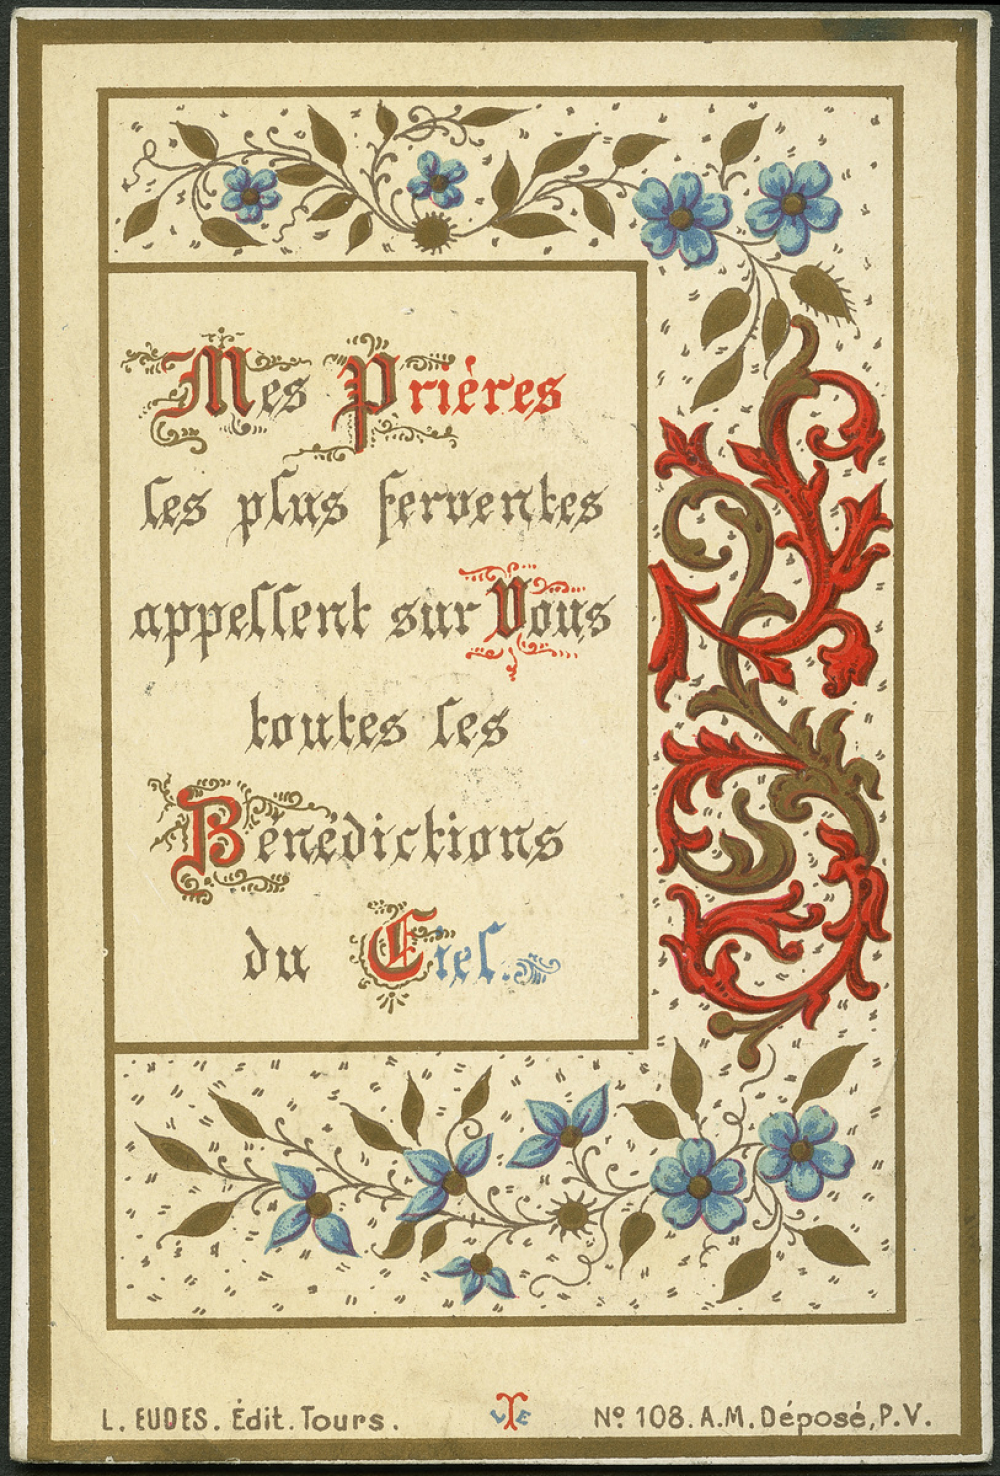 Mes Prières
les plus ferventes
appellent sur Vous
toutes les
Bénédictions
du Ciel.
L. EUDES. Édit. Tours.
L T E
Nº 108. A.M. Déposé, P.V.